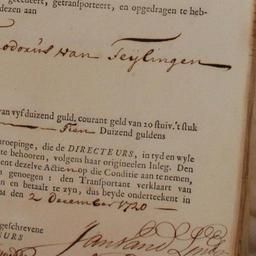 getransporteert, en opgedragen te heb-
dezen aan
odorus van Teijlingen
van vyf duizend guld, courant geld van 20 stuiv. 't stuk
Tien Duizend guldens
hroepinge, die de DIRECTEURS, in tyd en wyle
te behooren, volgens haar origineelen Inleg. Den
ent dezelve Actien op die Conditie aan te nemen,
genoegen: den Transportant verklaart van
n en betaalt te zyn, dus beyde onderteekent in
den 2 December 1720
geschrevene
EURS
Jan van